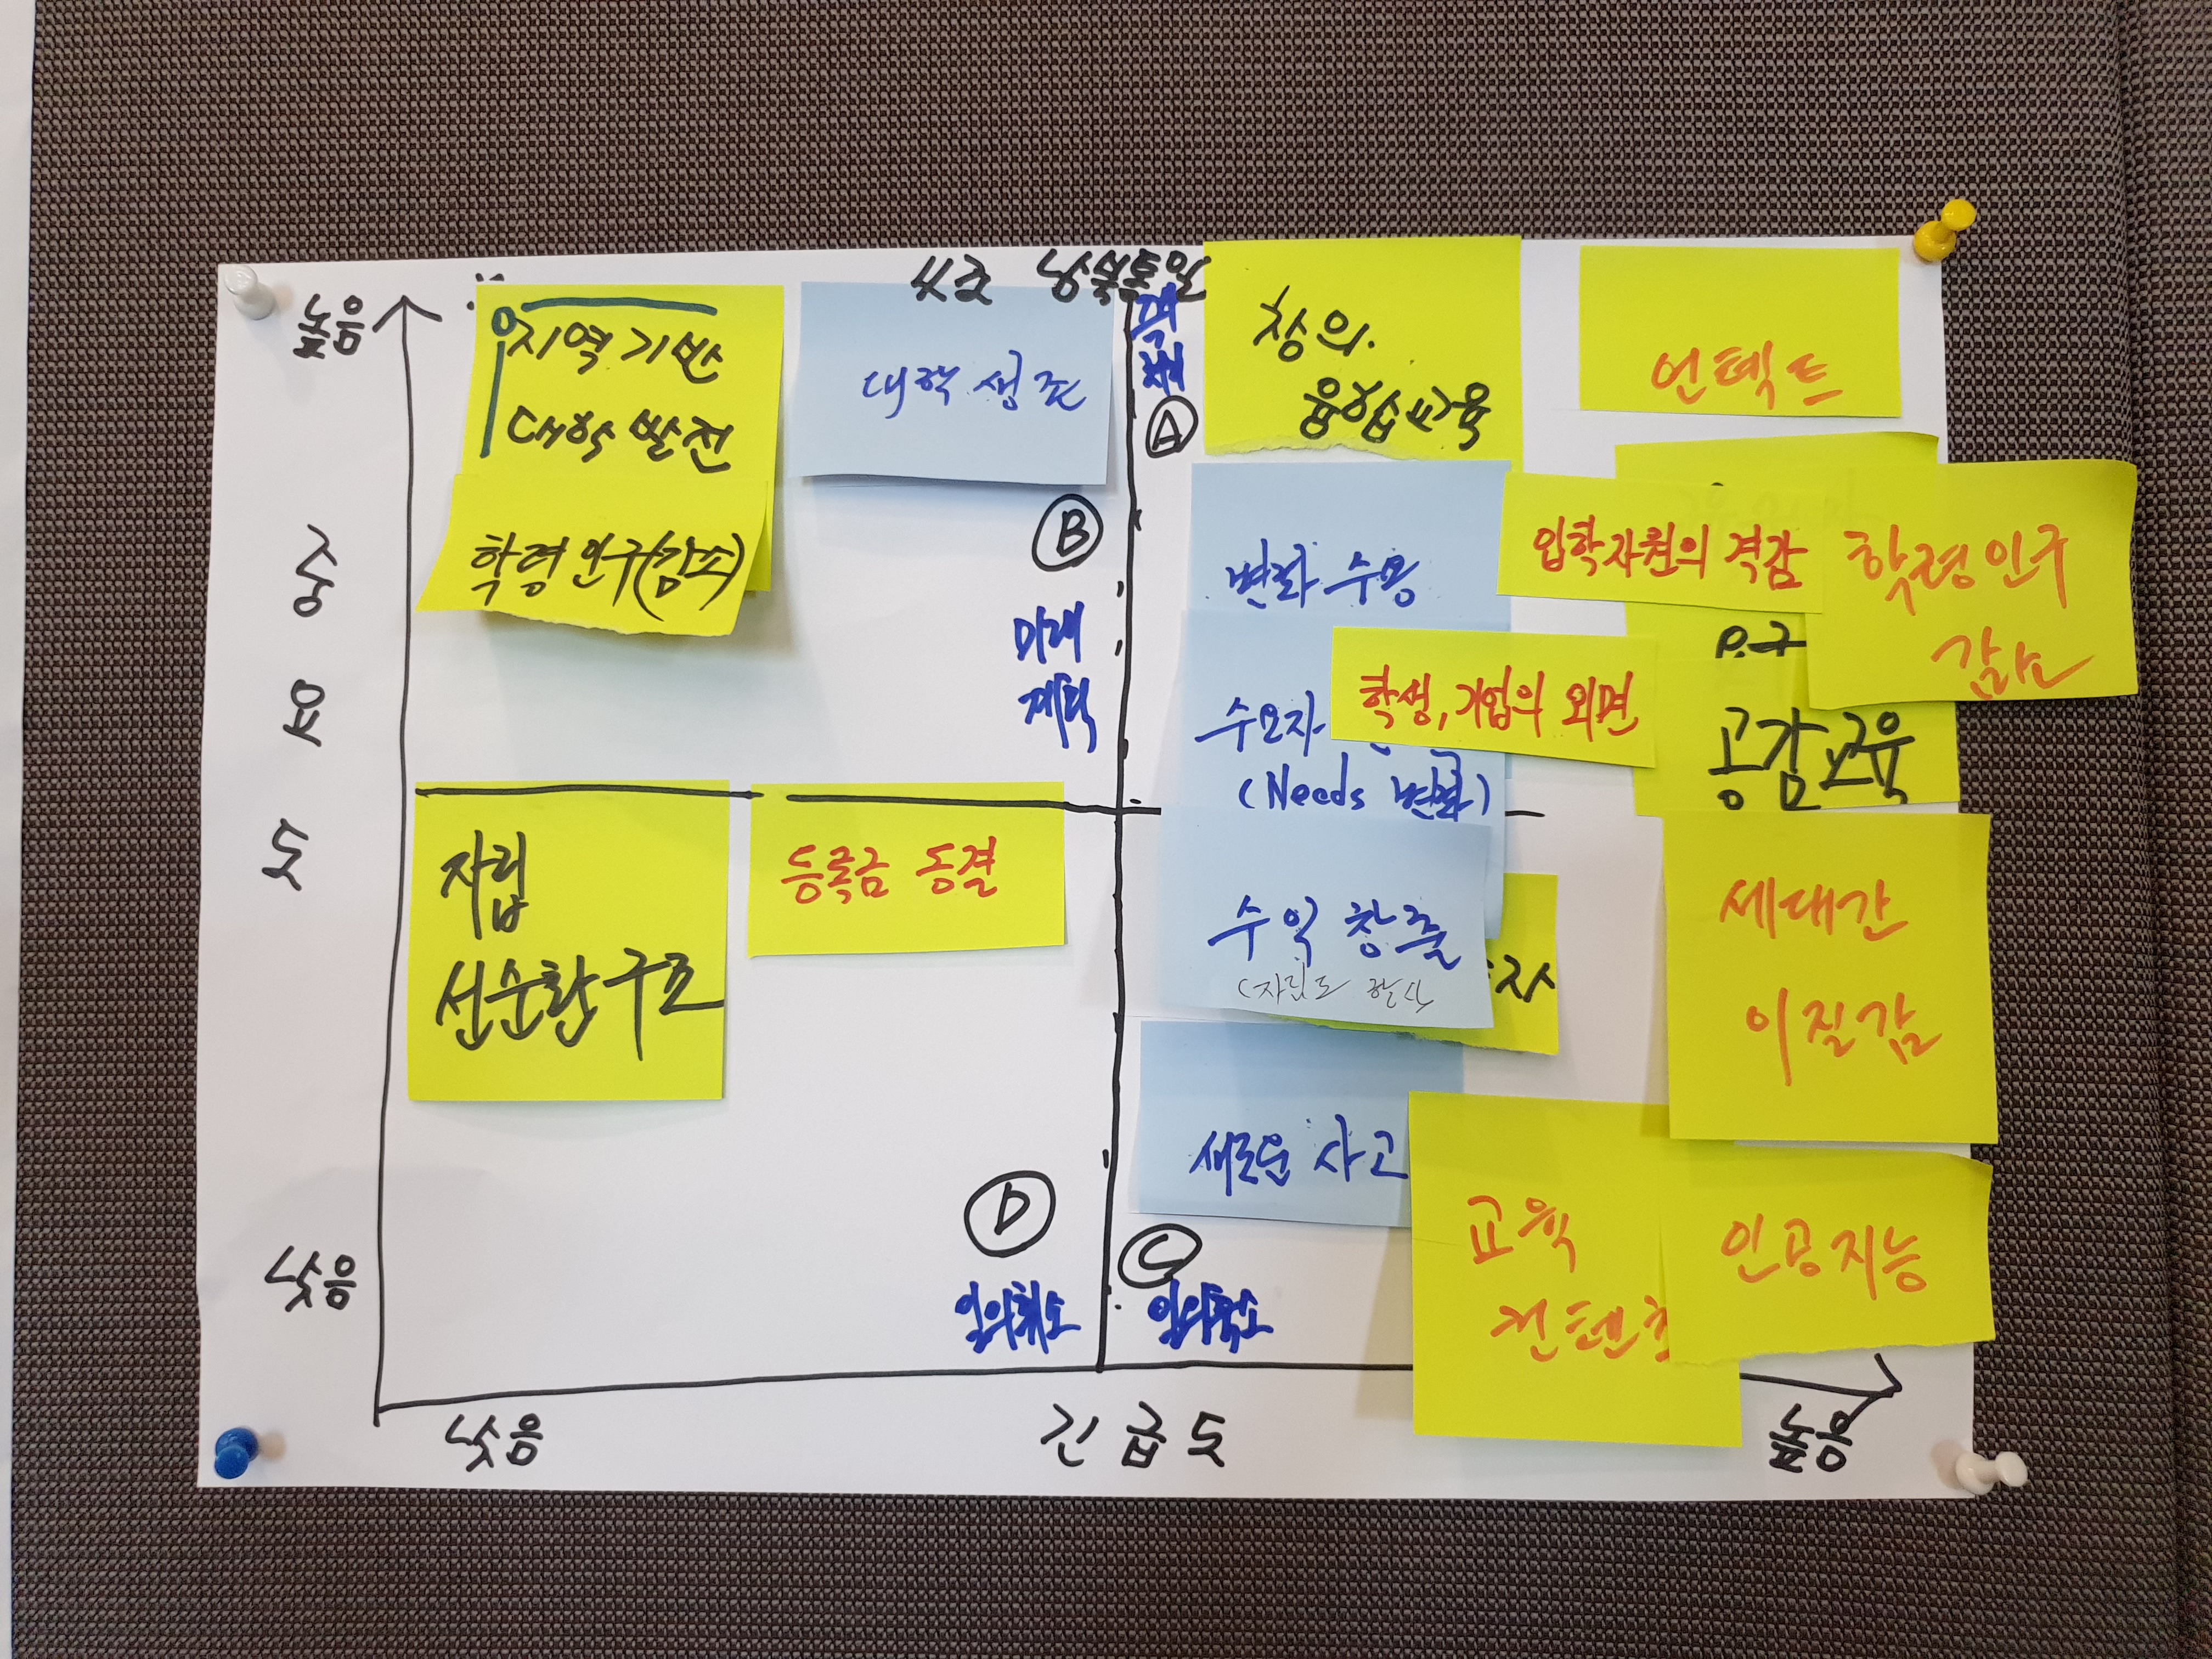 4조 남북통일
높음
지역기반
대학발전
학령인구(감소)
대학 생존
Ⓑ
미래
계획
Ⓐ
창의.
융합교육
언텍트
변화 수용
수요자
(Needs 변화)
입학자원의 격감
학령인구
감소
학생, 기업의 외면
공감교육
중
요
도
자립
선순환구조
등록금 동결
수익 창출
(자립도
세대간
이질감
새로운 사고
교육
컨텐츠
인공지능
Ⓓ
일의취소
Ⓒ
일의축소
낮음
낮음
긴급도
높음